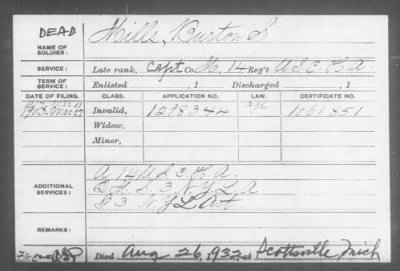 DEAD
NAME OF SOLDIER: Mills, Burton S
SERVICE: Late rank, Capt Co. M, 14 Reg't U S C. H A.
TERM OF SERVICE: Enlisted , 1 Discharged , 1
DATE OF FILING. CLASS. APPLICATION NO. LAW. CERTIFICATE NO.
1903 Mar 27 Invalid, 1298344 1061851
Widow,
Minor,
ADDITIONAL SERVICES: A 14 U S C. H A.
3 N. Y. L A
G 3 N Y L Art
REMARKS:
Died Aug 26, 1932, at Scottsville Mich